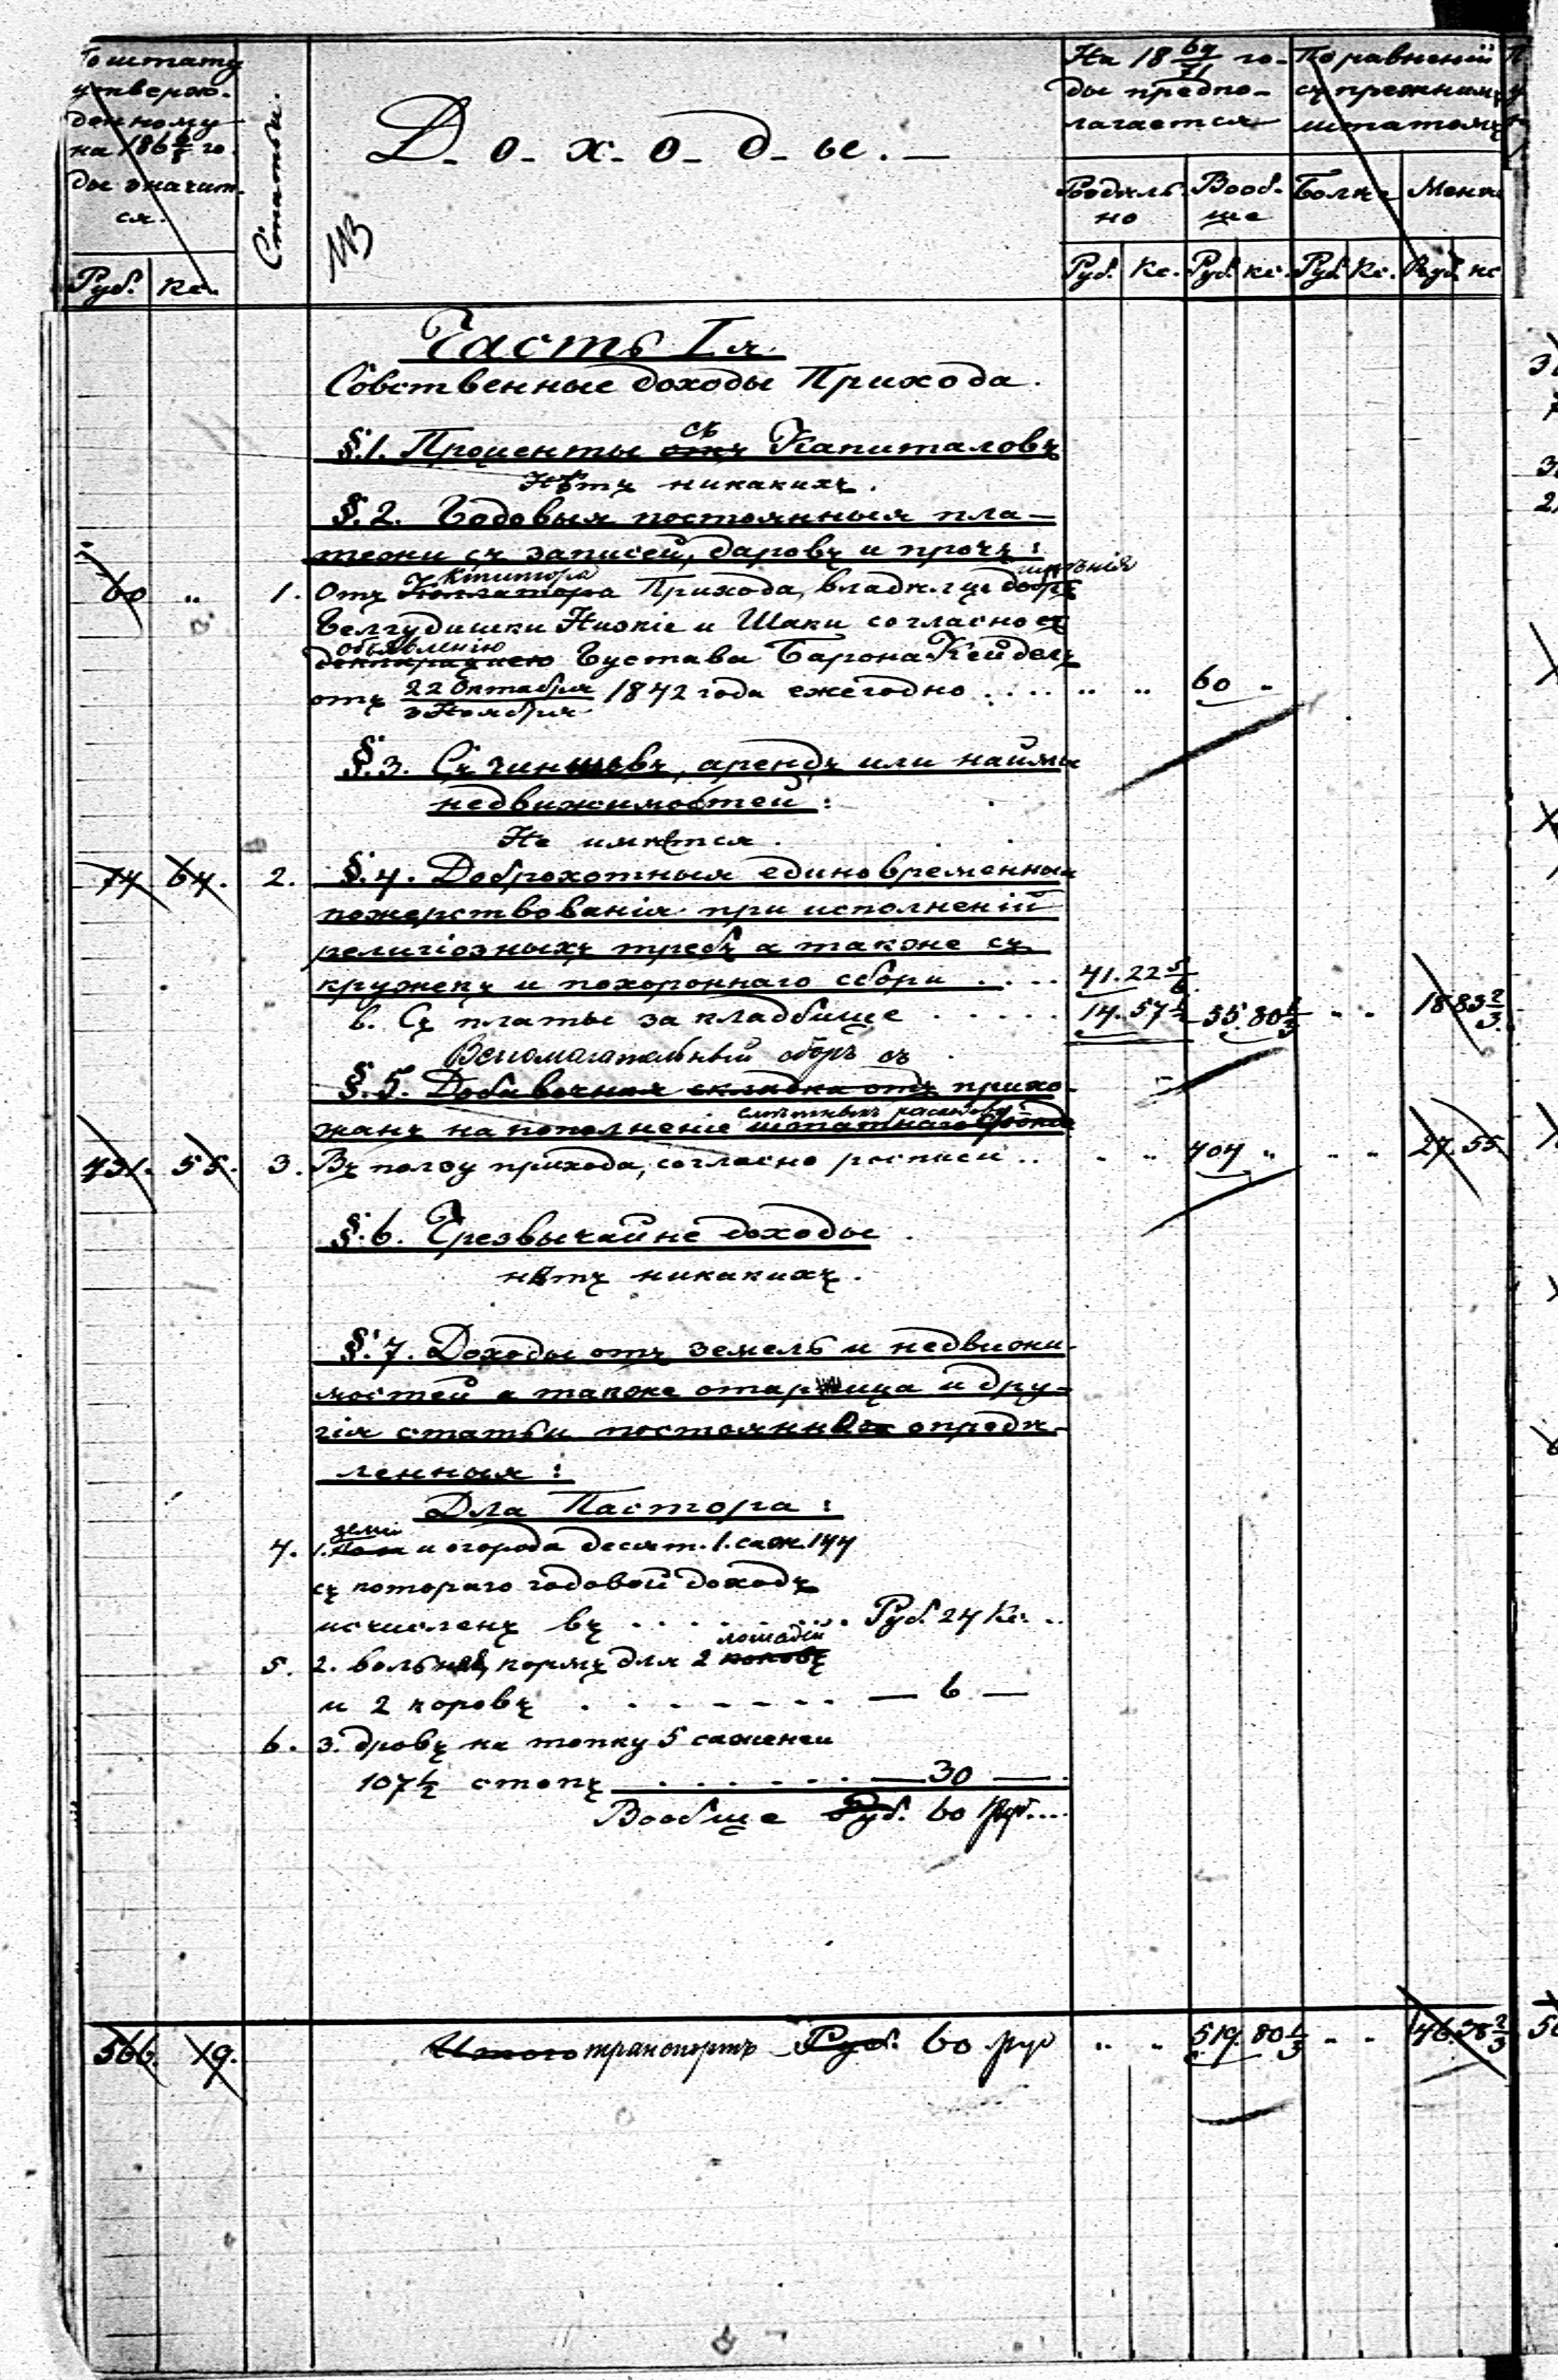 По штату
утверж-
денному
на 186 6/8 го-
ды значит-
ся.
Руб. Кс.
Статьи.
Д-о-х-о-д-ы.
NB
На 18 69/71 го-
ды предпо-
лагается
Подѣль-
но
Вооб-
ще
По равненій
съ прежнимъ
штатомъ
Болѣе
Менѣе
Руб. Кс. Руб. Кс. Руб. Кс. Руб. Кс.
Часть I я.
Собственные доходы Прихода.
съ
§.1. Проценты отъ Капиталовъ
Нѣтъ никакихъ.
§.2. Годовыя постоянныя пла-
тежи съ записей, даровъ и прочъ:
Ктитора имѣнія
60 „ 1. Отъ Коллатора Прихода, владѣлца добръ
Белгудишки Низкіе и Шаки согласно съ
объявленію
деклараціею Густава Барона Кейделъ
отъ 22 Октября / 3 Ноября 1842 года ежегодно .... „ „ 60 „
§.3. Съ чиншовъ, арендъ или наймы
недвижимостей:
Не имѣется.
74 64. 2. §.4. Доброхотныя единовременныя
пожерствованія при исполненій
религіозныхъ требъ а также съ
кружекъ и похороннаго сбори .... 41.22 5/6
в. Съ платы за кладбище ..... 14.57 1/2 55.80 1/3 „ „ 18 83 2/3
Вспомагательный сборъ съ
§.5. Добавочная складка отъ прихо-
смѣтныхъ расходовъ
жанъ на пополненіе штатнаго фонда
431. 55. 3. Въ ползу прихода, согласно росписи .. „ „ 404 „ „ „ 27.55.
§.6. Чрезвычайне доходы
нѣтъ никакихъ.
§.7. Доходы отъ земель и недвижи-
мостей а также отарица и дру-
гія статьи постоянныя опредѣ-
ленныя:
Для Пастора:
земли
4. 1. Поля и огорода десят. 1. саж. 144
съ котораго годовой доходъ
исчисленъ въ ....... Руб. 24 Кс. ..
лошадій
5. 2. вольный кормъ для 2 коновъ
и 2 коровъ ....... — 6 —
6. 3. дровъ на топку 5 саженеи
107 1/2 стопъ ....... — 30 —.
Вообще Руб. 60 Руб....
566. 19. Итого транспортъ Руб. 60 руб „ „ 519. 80 1/3 „ „ 46.38 2/3